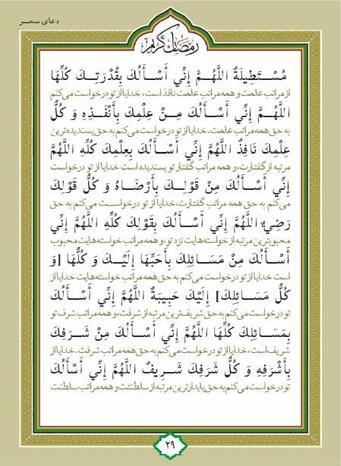 دعای سحر
رمضان کریم
مُسْتَطِیلَةٌ اللَّهُمَّ إِنِّي أَسْأَلُكَ بِقُدْرَتِكَ كُلِّهَا
از مراتب علمت و همه مراتب علمت نافذ است، خدایا از تو درخواست می‌کنم
اللَّهُمَّ إِنِّي أَسْأَلُكَ مِنْ عِلْمِكَ بِأَنْفَذِهِ وَ كُلُّ
به حق همه مراتب علمت، خدایا از تو درخواست می‌کنم به حق پسندیده‌ترین
عِلْمِكَ نَافِذٌ اللَّهُمَّ إِنِّي أَسْأَلُكَ بِعِلْمِكَ كُلِّهِ اللَّهُمَّ
مرتبه از گفتارت، و همه مراتب گفتار تو پسندیده است خدایا از تو درخواست
إِنِّي أَسْأَلُكَ مِنْ قَوْلِكَ بِأَرْضَاهُ وَ كُلُّ قَوْلِكَ
می‌کنم به حق همه مراتب گفتارت، خدایا از تو درخواست می‌کنم به حق
رَضِيٌّ اللَّهُمَّ إِنِّي أَسْأَلُكَ بِقَوْلِكَ كُلِّهِ اللَّهُمَّ إِنِّي
محبوبترین مرتبه از خواسته‌هایت نزد تو، و همه مراتب خواسته‌هایت محبوب
أَسْأَلُكَ مِنْ مَسَائِلِكَ بِأَحَبِّهَا إِلَيْكَ وَ كُلُّهَا [وَ
است خدایا از تو درخواست می‌کنم به حق همه مراتب خواسته‌هایت خدایا از
كُلُّ مَسَائِلِكَ] إِلَيْكَ حَبِيبَةٌ اللَّهُمَّ إِنِّي أَسْأَلُكَ
تو درخواست می‌کنم به حق شریف‌ترین مرتبه از شرفت و همه مراتب شرف تو
بِمَسَائِلِكَ كُلِّهَا اللَّهُمَّ إِنِّي أَسْأَلُكَ مِنْ شَرَفِكَ
شریف است، خدایا از تو درخواست می‌کنم به حق همه مراتب شرفت، خدایا از
بِأَشْرَفِهِ وَ كُلُّ شَرَفِكَ شَرِيفٌ اللَّهُمَّ إِنِّي أَسْأَلُكَ
تو درخواست می‌کنم به حق پایدارترین مرتبه از سلطنتت و همه مراتب سلطنت
۲۹